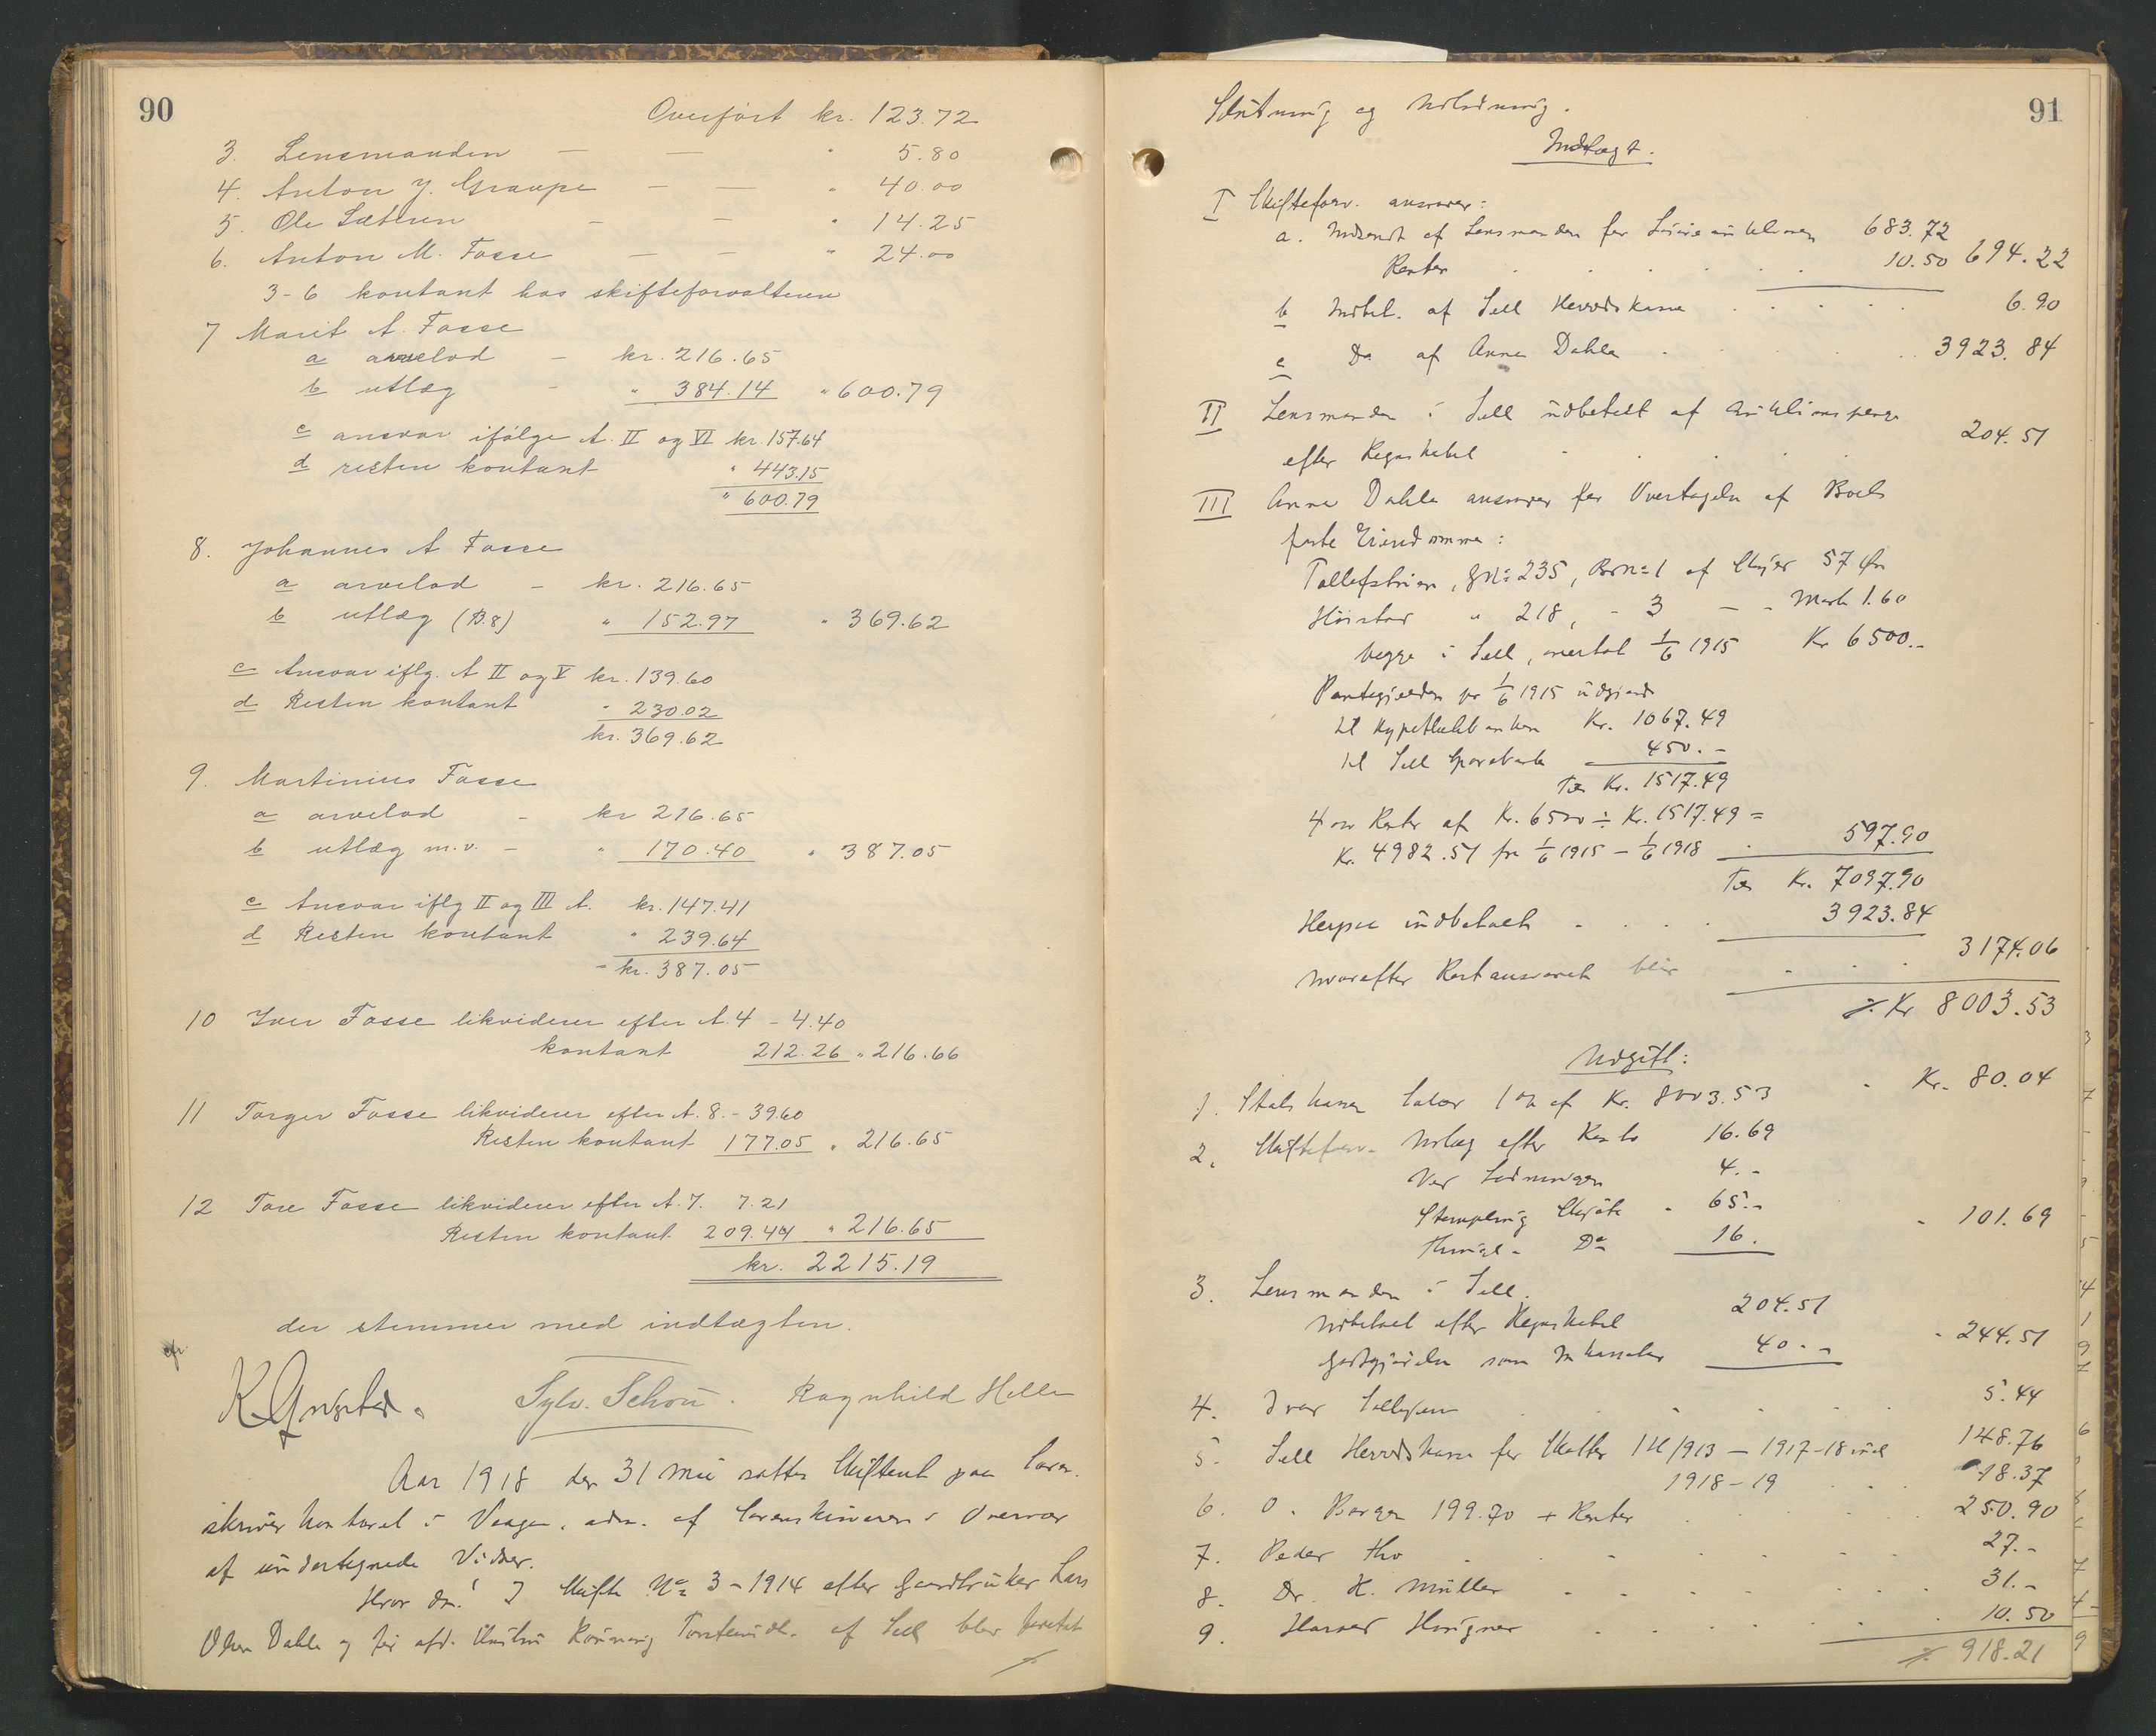 90
Overført kr. 123.72
3. Lensmanden — — " 5.80
4. Anton J. Graupe — — " 40.00
5. Ole Sæteren — — " 14.25
6. Anton M. Fosse — — " 24.00
3-6 kontant hos skifteforvalteren
7 Marit A. Fosse
a arvelod — kr. 216.65
b utlæg - " 384.14 " 600.79
c ansvar ifølge A. II og VI kr. 157.64
d resten kontant " 443.15
" 600.79
8. Johannes A Fosse
a arvelod — kr. 216.65
b utlæg (B.8) " 152.97 " 369.62
c Ansvar iflg. A II og V kr. 139.60
d Resten kontant " 230.02
kr. 369.62
9. Martinius Fosse
a arvelod - kr 216.65
b utlæg m.v. - " 170.40 " 387.05
c Ansvar iflg II og III A. kr. 147.41
d Resten kontant " 239.64
- kr. 387.05
10 Iver Fosse likviderer efter A. 4 - 4.40
kontant 212.26 " 216.66
11 Torger Fosse likviderer efter A. 8. - 39.60
Resten kontant 177.05 " 216.65
12 Tore Fosse likviderer efter A. 7. 7.21
Resten kontant 209.44 " 216.65
kr. 2215.19
der stemmer med indtægten.
Sylv. Schou. Ragnhild Helle
Aar 1918 den 31 Mai sattes Skifteret paa Soren-
skriverkontoret i Vaage, adm. af Sorenskriveren i Overvær
af undertegnede Vidner.
Hvor da: I Skifte No 3 - 1914 efter Gaardbruker Lars
Olsen Dahle og før afd. Hustru Rønnaug Torsteinsdtr. af Sell blev foretat
91
Slutning og Utlodning.
Indtægt.
I Skifteforv. ansvarer:
a. Indsendt af Lensmanden for Løsøreauktionen 683.72
Renter 10.50 694.22
b Indbet. af Sell Herredskasse 6.90
c Do af Anne Dahle 3923.84
II Lensmanden i Sell utbetalt af Auktionspenge
efter Regnskabet 204.51
III Anne Dahle ansvarer for Overtagelse af Boets
faste Eiendomme:
Tollefstuen, Gn: 235, Brn: 1 af Skyld 57 Øre
Höistad " 218, - 3 — - Mark 1.60
begge i Sell, overtat 1/6 1915 Kr 6500.-
Pantegjælden pr 1/6 1915 utgjorde
til Hypothekbanken Kr. 1067.49
til Sell Sparebank 450.-
Tils Kr. 1517.49
4 % Renter af Kr. 6500 ÷ Kr. 1517.49 =
Kr. 4982.51 fra 1/6 1915 - 1/6 1918 597.90
Tils Kr. 7097.90
Herpaa indbetalt 3923.84
hvorefter Restansvaret blir 3174.06
Kr 8003.53
Utgift:
1. Statskassen Salær 1 % af Kr. 8003.53 - Kr. 80.04
2. Skifteforv. Utlæg efter Konto 16.69
Ved Lodningen 4.-
Stempling Skjöte - 65.-
Thingl - Do 16. - 101.69
3. Lensmanden i Sell.
Utbetalt efter Regnskabet 204.51
Godtgjörelse som Inkassator 40.- - 244.51
4. Ivar 5.44
5. Sell Herredskasse for Skatter 1913 - 1917-18 incl 148.76
1918-19 18.37
6. O. Borgen 199.70 + Renter 250.90
7. Peder Tho 27.-
8. Dr. H. Müller 31.-
9. 10.50
918.21